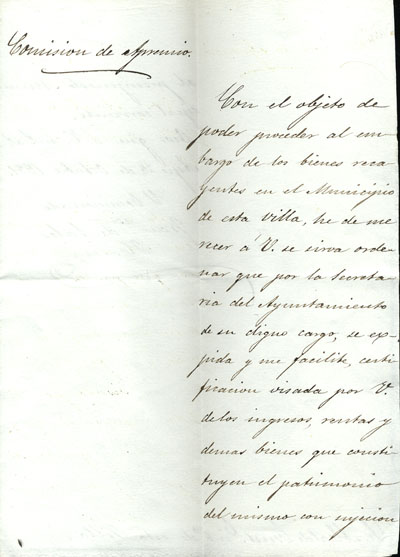 Comision de Apremio.
Con el objeto de
poder proceder al em
bargo de los bienes reca
yentes en el Municipio
de esta Villa, he de me
recer á V. se sirva orde
nar que por la Secreta
ria del Ayuntamiento
de su digno cargo, se ex
pida y me facilite, certi
ficacion visada por V.
de los ingresos, rentas y
demas bienes que consti
tuyen el patrimonio
del mismo con